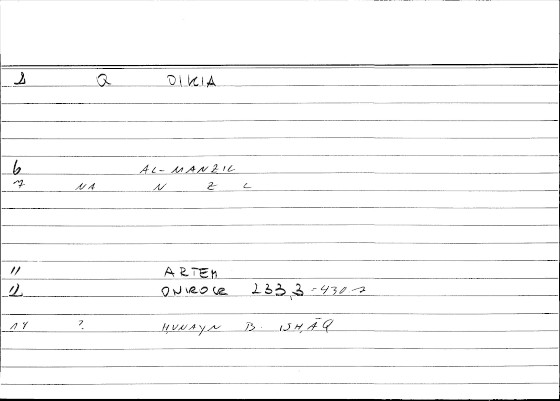 1 Q OIKIA
6 AL-MANZIL
7 NA N Z L
11 ARTEM
12 ONIROCR 233,3 = 430 7
14 ? HUNAYN B. ISḤĀQ